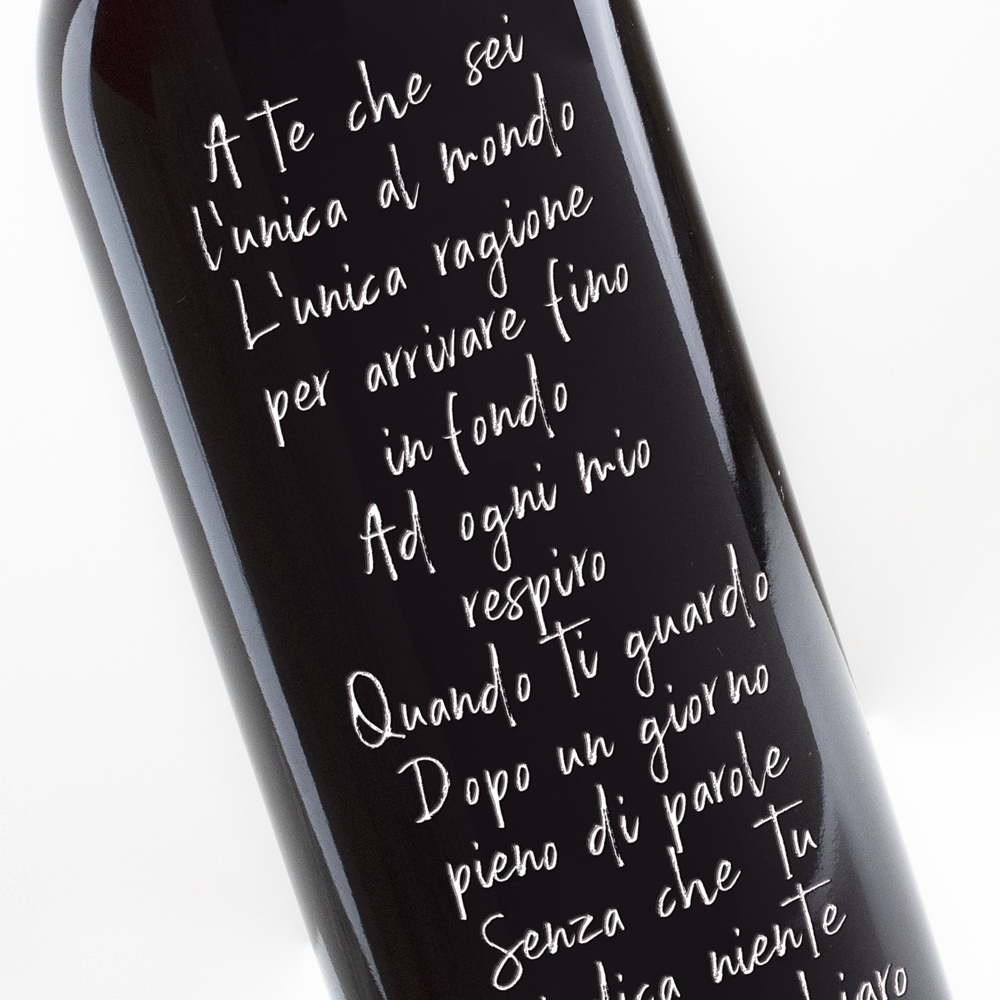 A Te che sei
l'unica al mondo
L'unica ragione
per arrivare fino
in fondo
Ad ogni mio
respiro
Quando Ti guardo
Dopo un giorno
pieno di parole
Senza che Tu
dica niente